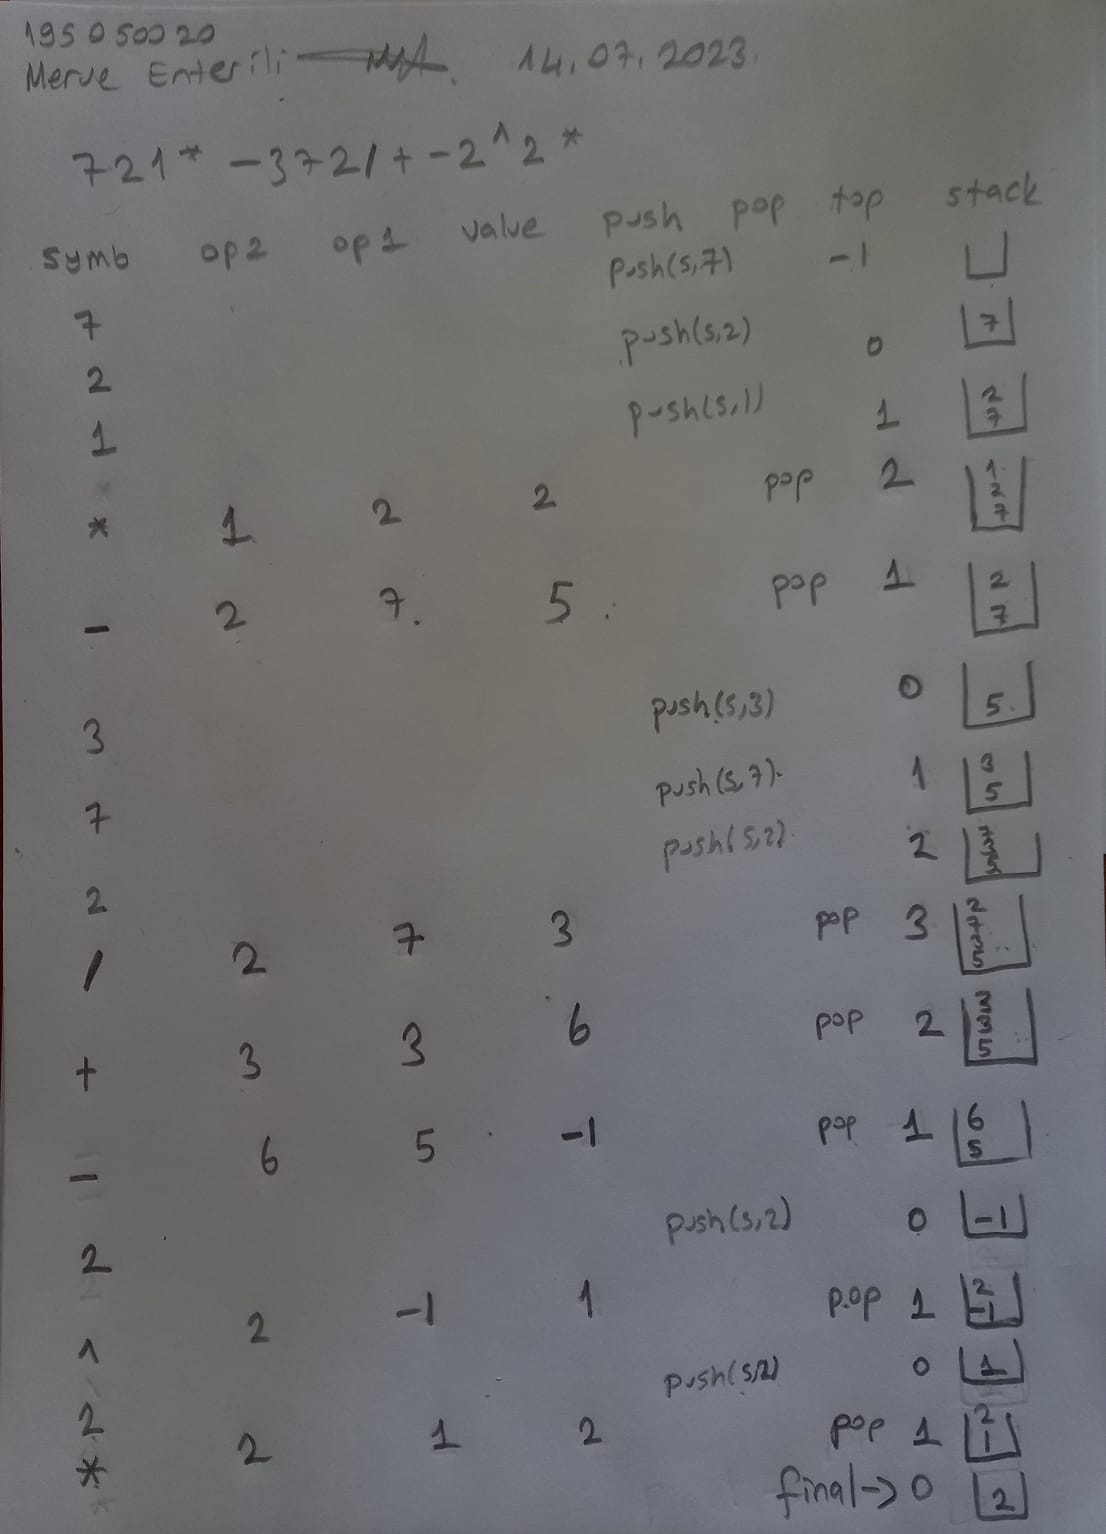 195050020
Merve Enterili 14.07.2023.
721* -372/+-2^2*
symb op2 op1 value push pop top stack
push(s,7) -1
7
push(s,2) 0 7
2
push(s,1) 1 2 7
1
* 1 2 2 pop 2 1 2 7
- 2 7. 5 pop 1 2 7
push(s,3) 0 5
3
push(s,7) 1 3 5
7
push(s,2) 2 7 3 5
2
/ 2 7 3 pop 3 2 7 3 5
+ 3 3 6 pop 2 3 3 5
- 6 5 -1 pop 1 6 5
push(s,2) 0 -1
2
^ 2 -1 1 pop 1 2 -1
push(s,2) 0 1
2
* 2 1 2 pop 1 2 1
final-> 0 2